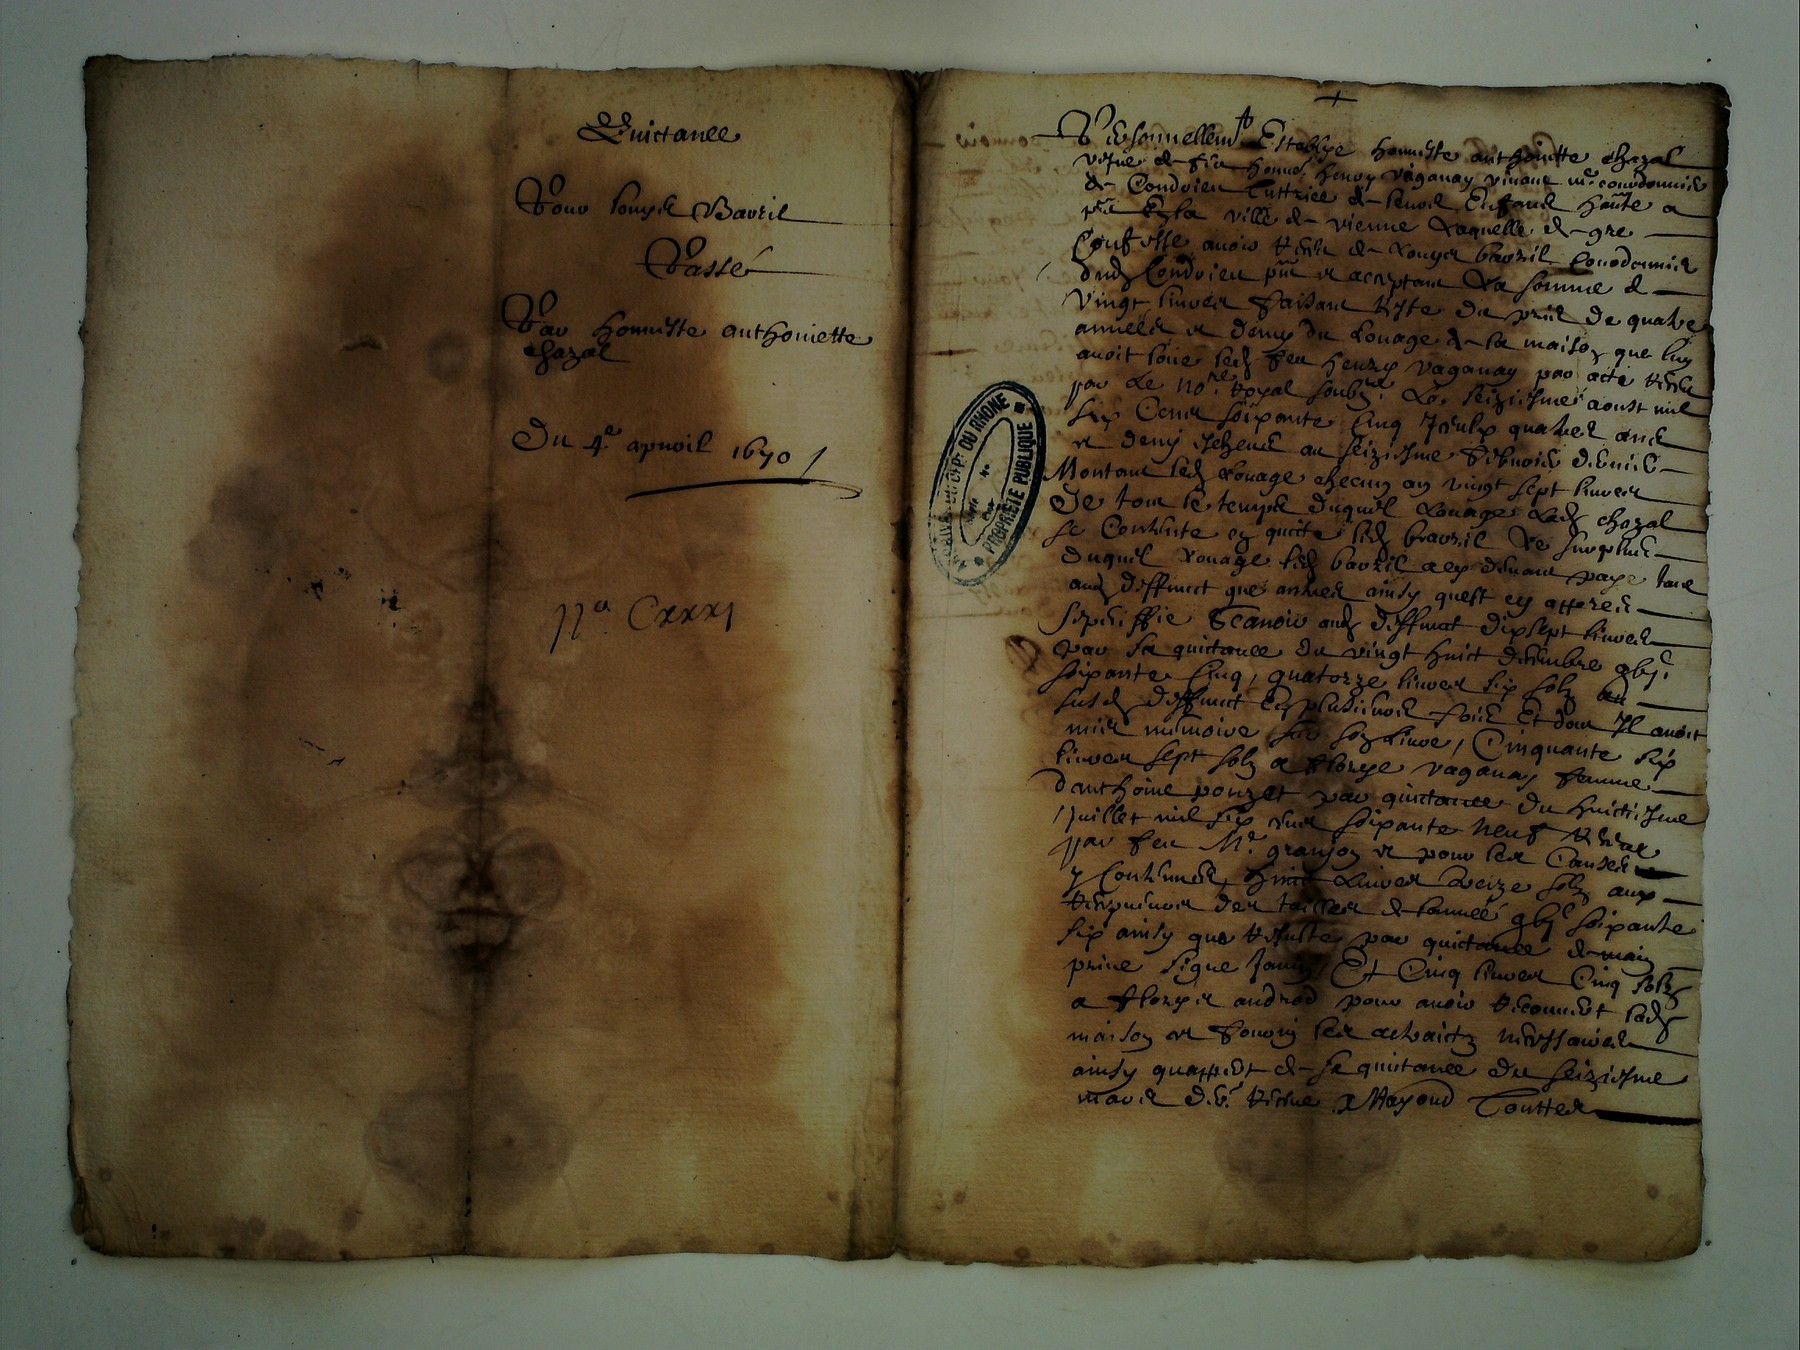 Quictance
Pour Rouyer Bavzil
Passé
Par honneste anthoinette
chazal
Du 4e apvril 1670
nça Cxxxj
ARCHIVES DU DEPt DU RHONE
PROPRIETE PUBLIQUE
Personnellemt Establye honneste anthoinette chazal
vefue de feu honne henry vaganay vivant me courdonnier
de Condrieu Tuttrice de leurs Enfans habte a
pnt En la ville de vienne Laquelle de gre
Confesse avoir Receu de Rouyer bavzil Courdonnier
dud Condrieu pnt et acceptant La somme de
vingt livres faisant Reste du prix de quatre
années et demy du Louage de la maison que luy
avoit loüe led feu henry vaganay par acte Receu
par Le nore Royal soubze Le seiziesme aoust mil
six Cens soixante Cinq Jceulx quatre ans
et demy escheus au seiziesme febvrier dernier
Montant led Louage chacun an vingt sept livres
De tout le temps duquel Louage Lad chazal
se Contente en quitte led bavzil Le surplus
duquel Louage led bavzil a cy devant paye tant
aud deffunct que autres ainsy quest cy appres
speciffie Scavoir aud deffunct dixsept livres
par sa quictance du vingt huict decembre gbjc
soixante Cinq, quatorze livres six solz au
susd deffunct En plusieurs fois Et dont Jl avoit
mis memoire sur son livre, Cinquante six
livres sept solz a vaganay femme
danthoine ponzet par quictance du huictiesme
juillet mil six cens soixante neuf Receue
par feu Me granjon et pour les Causes
y Contenues, huict Livres treize solz aux
des tailles de lannée gbjc soixante
six ainsy que Resulte par quictance de main
privé signe Janin, Et Cinq livres Cinq solz
a androd pour avoir Recouvert lad
maison et fourny les necessaires
ainsy quappert de sa quictance du seiziesme
mars der Receue Mayoud Touttes